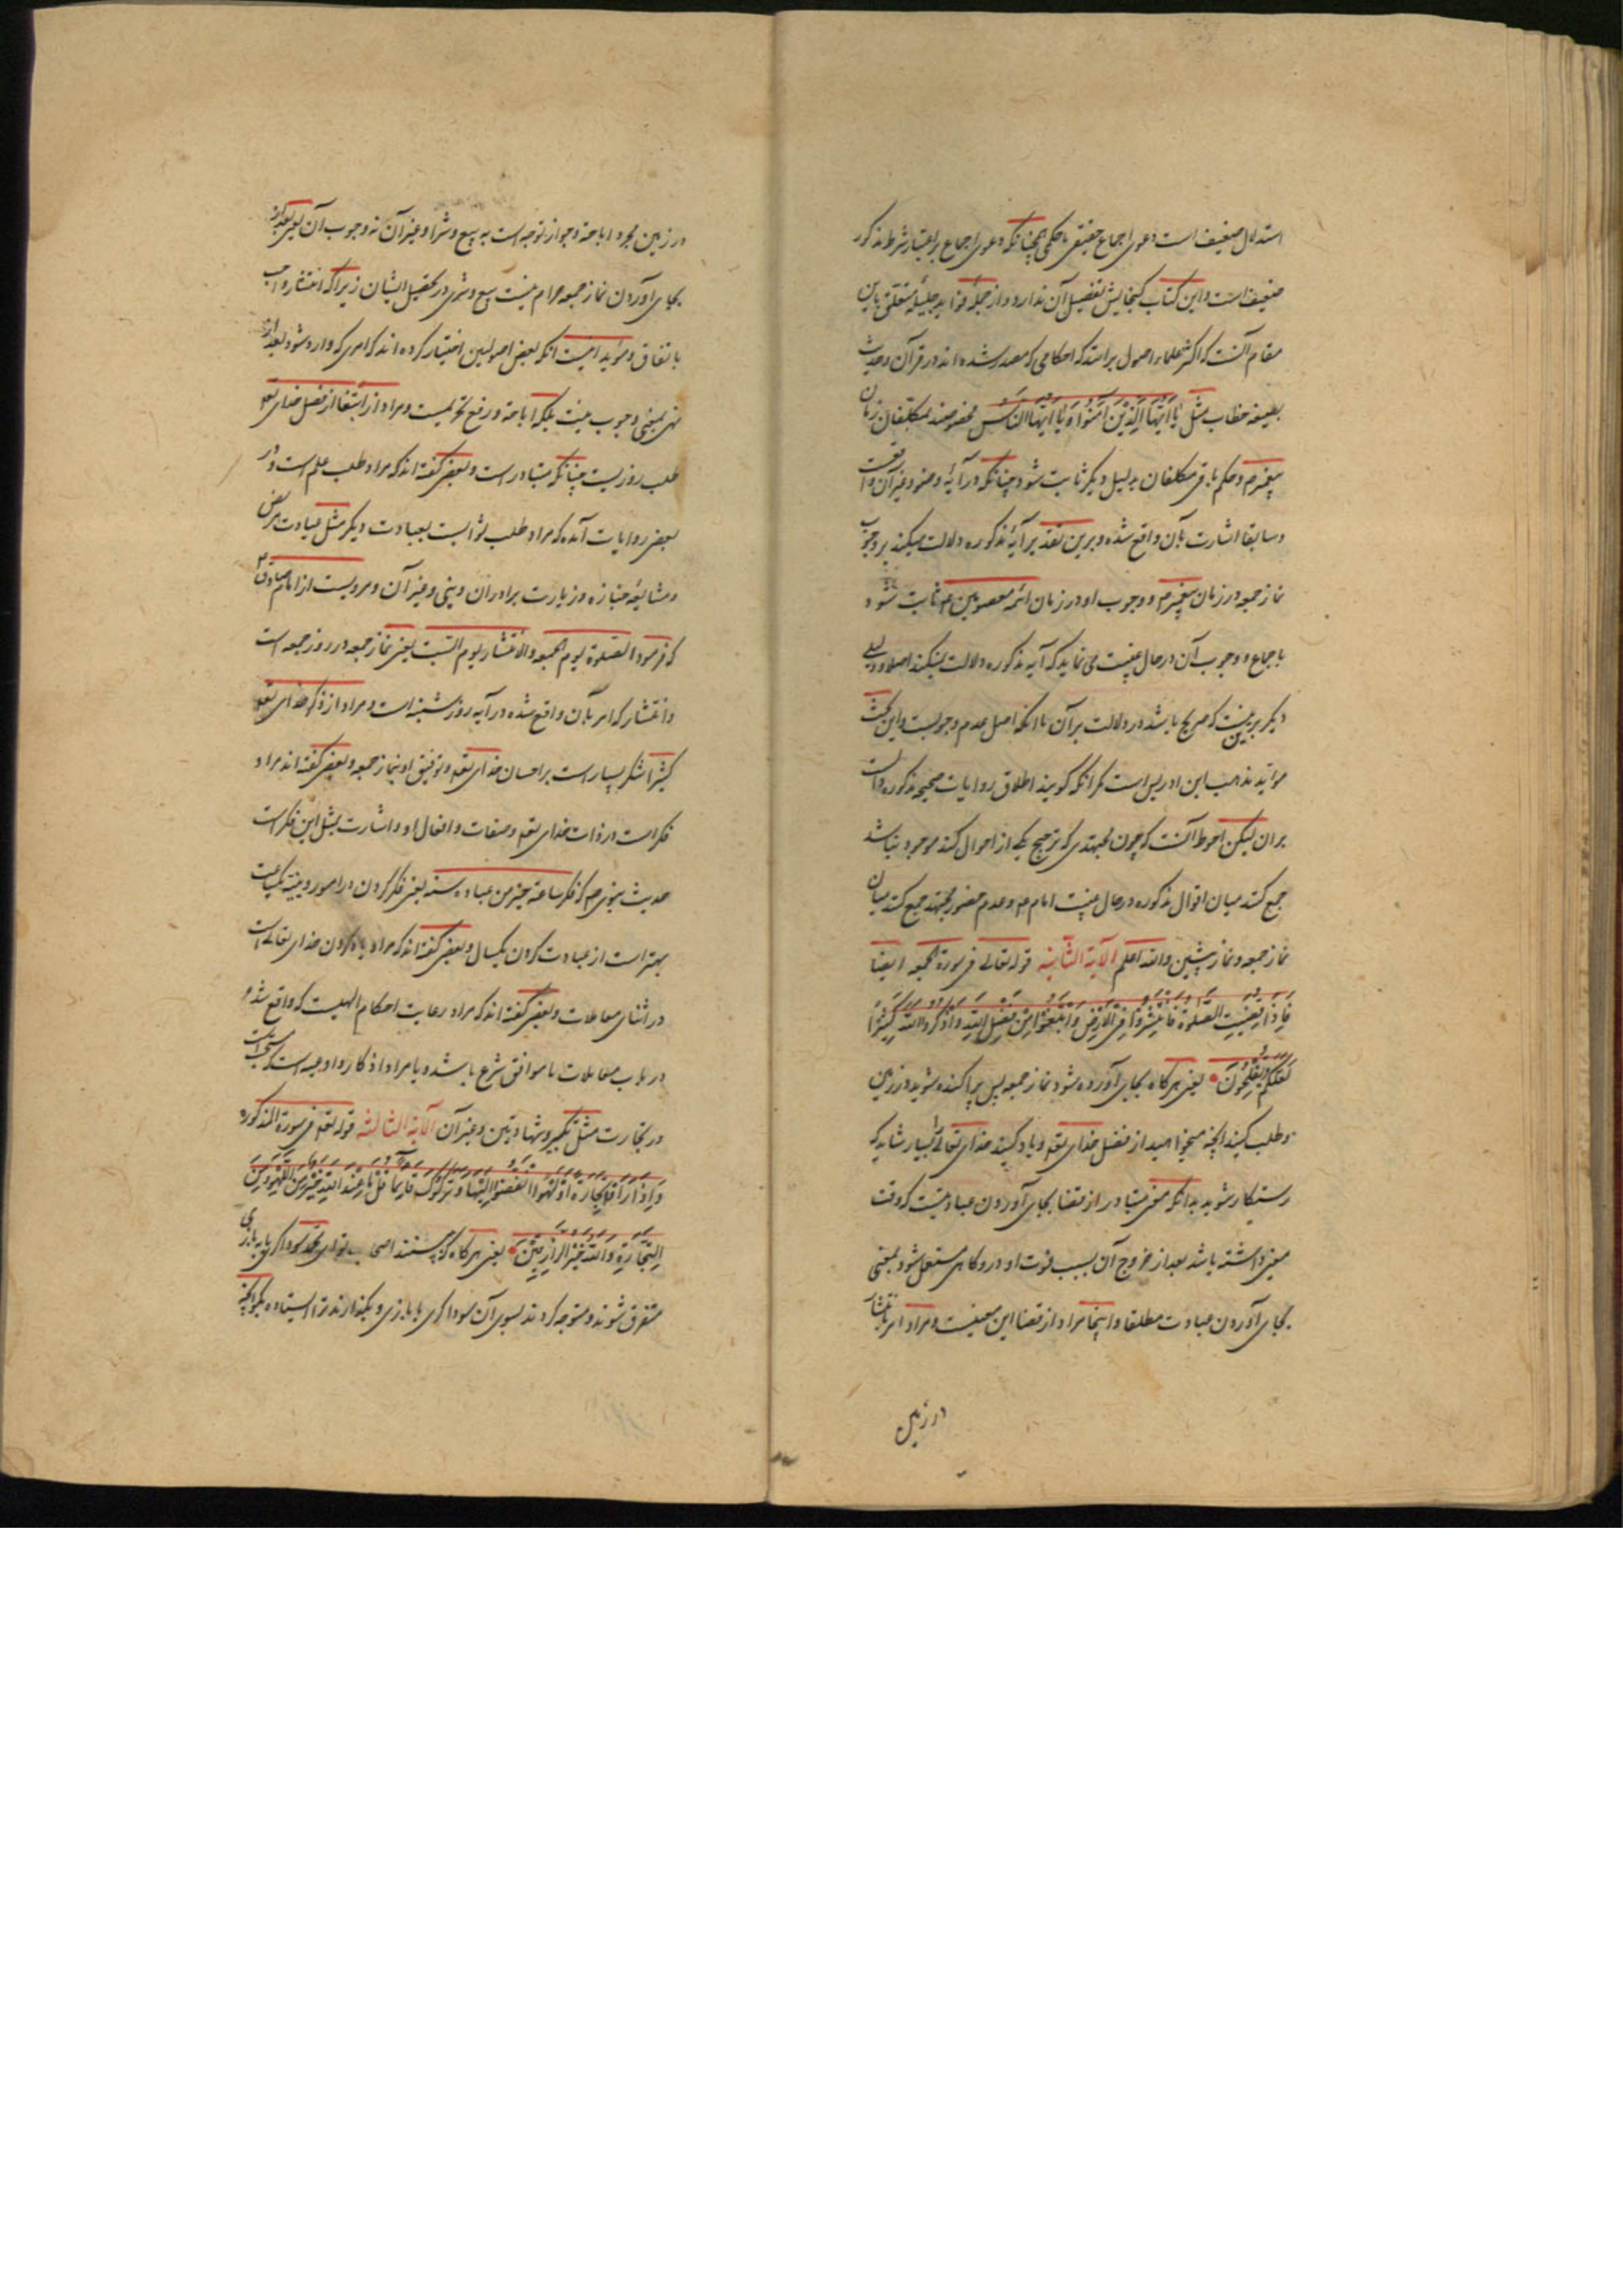 استدلال ضعیف است دعوی اجماع حقیقی یا حکمی همچنانکه دعوی اجماع بر اعتبار شرط مذکور
ضعیف است و این کتاب گنجایش تفصیل آن ندارد و از جمله فواید جلیله متعلق باین
مقام آنست که اکثر علماء اصول برانند که احکامی که مصدر شده اند در قرآن و حدیث
بصیغه خطاب مثل یَا اَیُّهَا الَّذِیْنَ آمَنُوْا وَ یَا اَیُّهَا النَّاسُ مخصوصند بمکلفان زمان
پیغمبرم و حکم باقی مکلفان بدلیل دیگر ثابت شود چنانکه در آیهٔ وضو و غیر آن واقعست
و سابقا اشارت بآن واقع شده و برین تقدیر آیهٔ مذکوره دلالت میکند بر وجوب
نماز جمعه در زمان پیغمبرم و وجوب او در زمان ائمه معصومین ع م ثابت شود
باجماع و وجوب آن در حال غیبت می نماید که آیه مذکوره دلالت نمیکند اصلا و دلیلی
دیگر برین نیست که صریح باشد در دلالت برآن با آنکه اصل عدم وجوبست و این بحث
مؤید مذهب ابن ادریس است مگر آنکه گویند اطلاق روایات صحیحه مذکوره دالست
بران لیکن احوط آنست که چون مجتهدی که ترجیح یکی از اقوال کند موجود نباشد
جمع کند میان اقوال مذکوره در حال غیبت امام ع م و عدم حضور مجتهد جمع کند میان
نماز جمعه و نماز پیشین والله اعلم الآیة الثانیه قوله تعالی فی سورة الجمعه ایضا
فَاِذَا قُضِیَتِ الصَّلٰوةُ فَانْتَشِرُوْا فِی الْاَرْضِ وَابْتَغُوْا مِنْ فَضْلِ اللّٰهِ وَاذْکُرُوا اللّٰهَ کَثِیْرًا
لَعَلَّکُمْ تُفْلِحُوْنَ یعنی هر گاه بجای آورده شود نماز جمعه پس پراکنده شوید در زمین
و طلب کنید آنچه میخواهید از فضل خدای تعه و یاد کنید خدای تعالی را بسیار شاید که
رستگار شوید بدانکه معنی متبادر از قضا بجای آوردن عبادتیست که وقت
معین داشته باشد بعد از خروج آن بسبب فوت او در و گاهی مستعمل شود بمعنی
بجای آوردن عبادت مطلقا و اینجا مراد از قضا این معنیست و مراد امر بانتشار
در زمین
در زمین مجرد اباحة و جواز توجه است به بیع و شرا و غیر آن نه وجوب آن یعنی بعد از
بجای آوردن نماز جمعه حرام نیست بیع و شری در تحصیل ایشان زیرا که انتشار واجب
باتفاق و مؤید اینست آنکه بعض اصولیین اختیار کرده اند که امری که وارد شود بعد از
نهی بمعنی وجوب نیست بلکه اباحة و رفع تحریمست و مراد از ابتغا از فضل خدای تعه
طلب روزیست چنانکه متبادر است و بعضی گفته اند که مراد طلب علم است و در
بعض روایات آمده که مراد طلب ثوابست بعبادت دیگر مثل عیادت مریض
و مشایعهٔ جنازه و زیارت برادران دینی و غیر آن و مرویست از امام صادق ع
که فرمود الصلوة یوم الجمعه والانتشار یوم السبت یعنی نماز جمعه در روز جمعه است
و انتشار که امر بآن واقع شده در آیه روز شنبه است و مراد از ذکر خدای تعه
کثیرا شکر بسیار است بر احسان خدای تعه و توفیق او بنماز جمعه و بعضی گفته اند مراد
فکر است در ذات خدای تعه و صفات و افعال او و اشارت بمثل این فکر است
حدیث نبوی ص که فکر ساعة خیر من عبادة سنة یعنی فکر کردن در امور دینیه یکساعت
بهتر است از عبادت کردن یکسال و بعضی گفته اند که مراد یاد کردن خدای تعالی است
در اثنای معاملات و بعضی گفته اند که مراد رعایت احکام الهیست که واقع شده
در باب معاملات تا موافق شرع باشد و یا مراد اذکار و ادعیه است که مستحب است
در تجارت مثل تکبیر و شهادتین و غیر آن الآیة الثالثه قوله تعه فی سورة المذکوره
وَاِذَا رَاَوْا تِجَارَةً اَوْ لَهْوًا انْفَضُّوْا اِلَیْهَا وَتَرَکُوْکَ قَائِمًا قُلْ مَا عِنْدَ اللّٰهِ خَیْرٌ مِنَ اللَّهْوِ وَمِنَ
التِّجَارَةِ وَاللّٰهُ خَیْرُ الرَّازِقِیْنَ یعنی هر گاه که بینند اصحاب تو ای محمد سوداگری یا بازی
متفرق شوند و متوجه گردند بسوی آن سوداگری یا بازی و بگذارند ترا ایستاده بگو آنچه